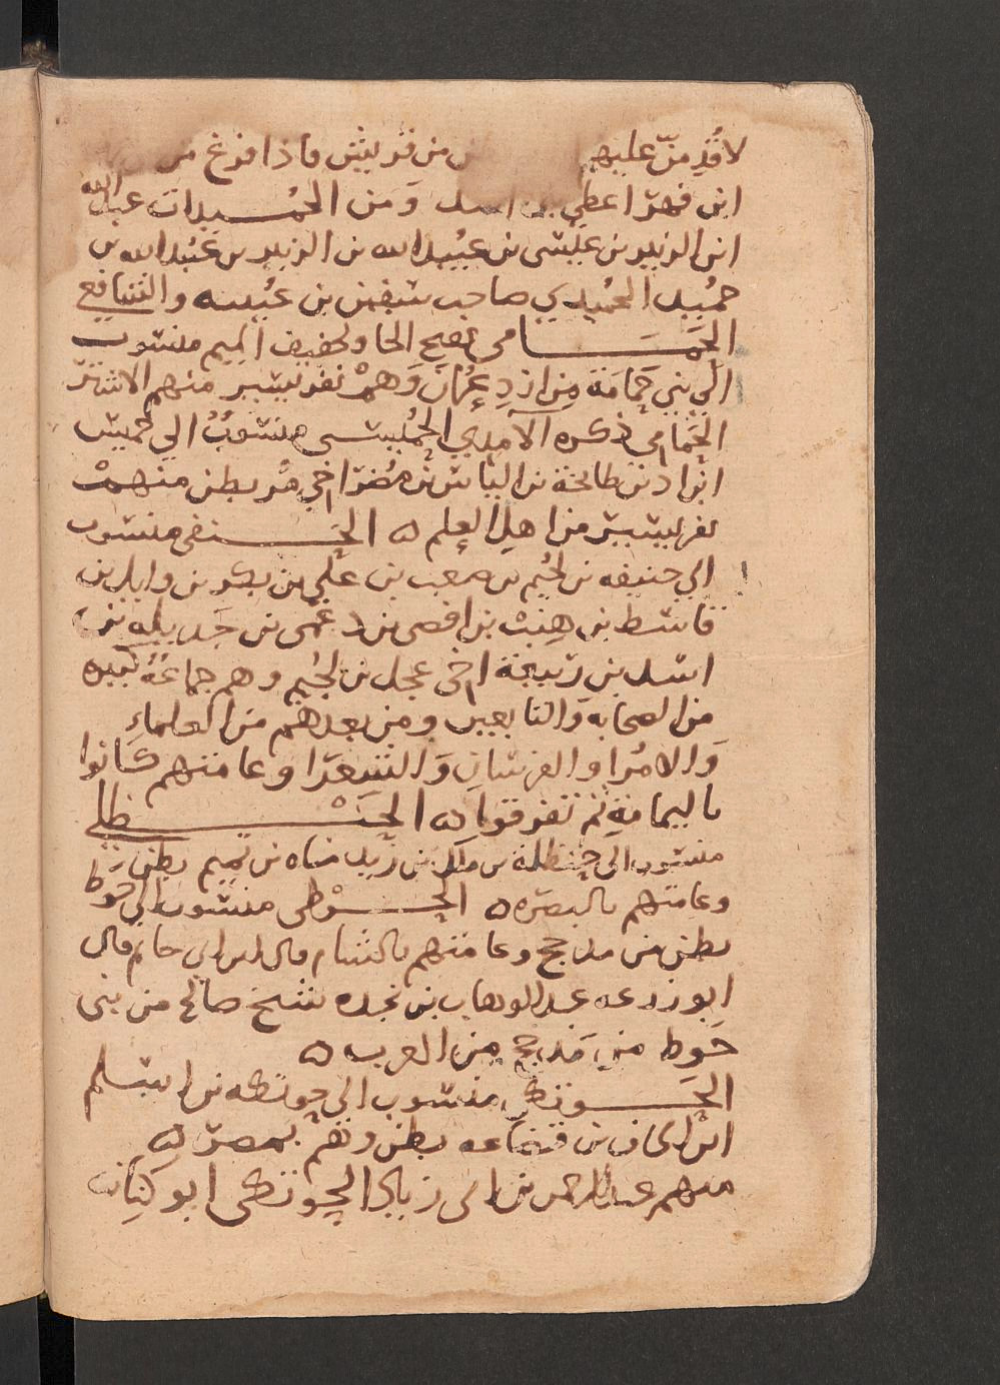 لا قُدِّمنّ عليهم من قريش فاذا فرغ من
ابن فهرٍ اعطي بني اسد وَمن الحُمــيدات عبد الله
ابن الزبير بن عيسى بن عبيد الله بن الزبير بن عُبيد الله بن
حميد الحُميدي صاحب سفين بن عُيينه والشافعي
الحَمَــامي بفتح الحا وتخفيف الميم منسوب
الي بني حَمَامَة مِن ازدِ عُمان وَهمْ نفر يسير منهم الاشتر
الحَمامي ذكره الآمدي الحُميسي منسوبٌ الي حُميس
ابن ادّ بن طابخة بن الياس بن مُضر اخي مُر بطن منهمْ
نفر يسير من اهل العلم ه الحَــنفي منسوب
الي حنيفه بن لُجيم بن صعب بن علي بن بكر بن وايل بن
قاسط بن هِنبْ بن افصى بن دعمى بن جَديله بن
اسد بن ربيعة اخي عجل بن لُجيم وهم جماعَةٌ كبيره
من الصحابه وَالتابعين ومن بعدهم من العلماءِ
وَالامُرا والفرسانِ وَالشعَرَا وعامتهم كانوا
باليمامةِ ثم تفرقوا ه الحَنْــظلي
منسوب الي حنظلة بن ملك بن زيد مناه بن تميم بطن
وعامتهم بالبصَره ه الحَــوْطى منسوب الي حَوط
بطن من مذحج وعامتهم بالشام قال ابن ابي حاتم قال
ابو زرعه عبد الوهاب بن نجده شيخ صالح من بنى
حَوط من مَذحج من العرب ه
الحَــوتكي منسوب الي حوتكه بن اسلم
ابن الحاف بن قضاعه بطن وهم بمصرَ ه
منهم عبد الرحمن بن ابى زياد الحوتكى ابو كنانه